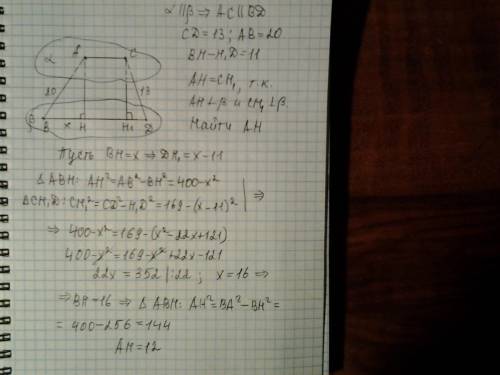 α∥β ⇒ AC∥BD
CD=13; AB=20
BH-H₁D=11
AH=CH₁, т.к.
AH⊥β и CH₁⊥β.
Найти AH
A C
α
20 13
β B x H H₁ D
Пусть BH=x ⇒ DH₁=x-11
△ABH: AH²=AB²-BH²=400-x²
△CH₁D: CH₁²=CD²-H₁D²=169-(x-11)² | ⇒
⇒ 400-x²=169-(x²-22x+121)
400-x²=169-x²+22x-121
22x=352 |:22; x=16 ⇒
⇒ BH=16 ⇒ △ABH: AH²=BA²-BH²=
=400-256=144
AH=12